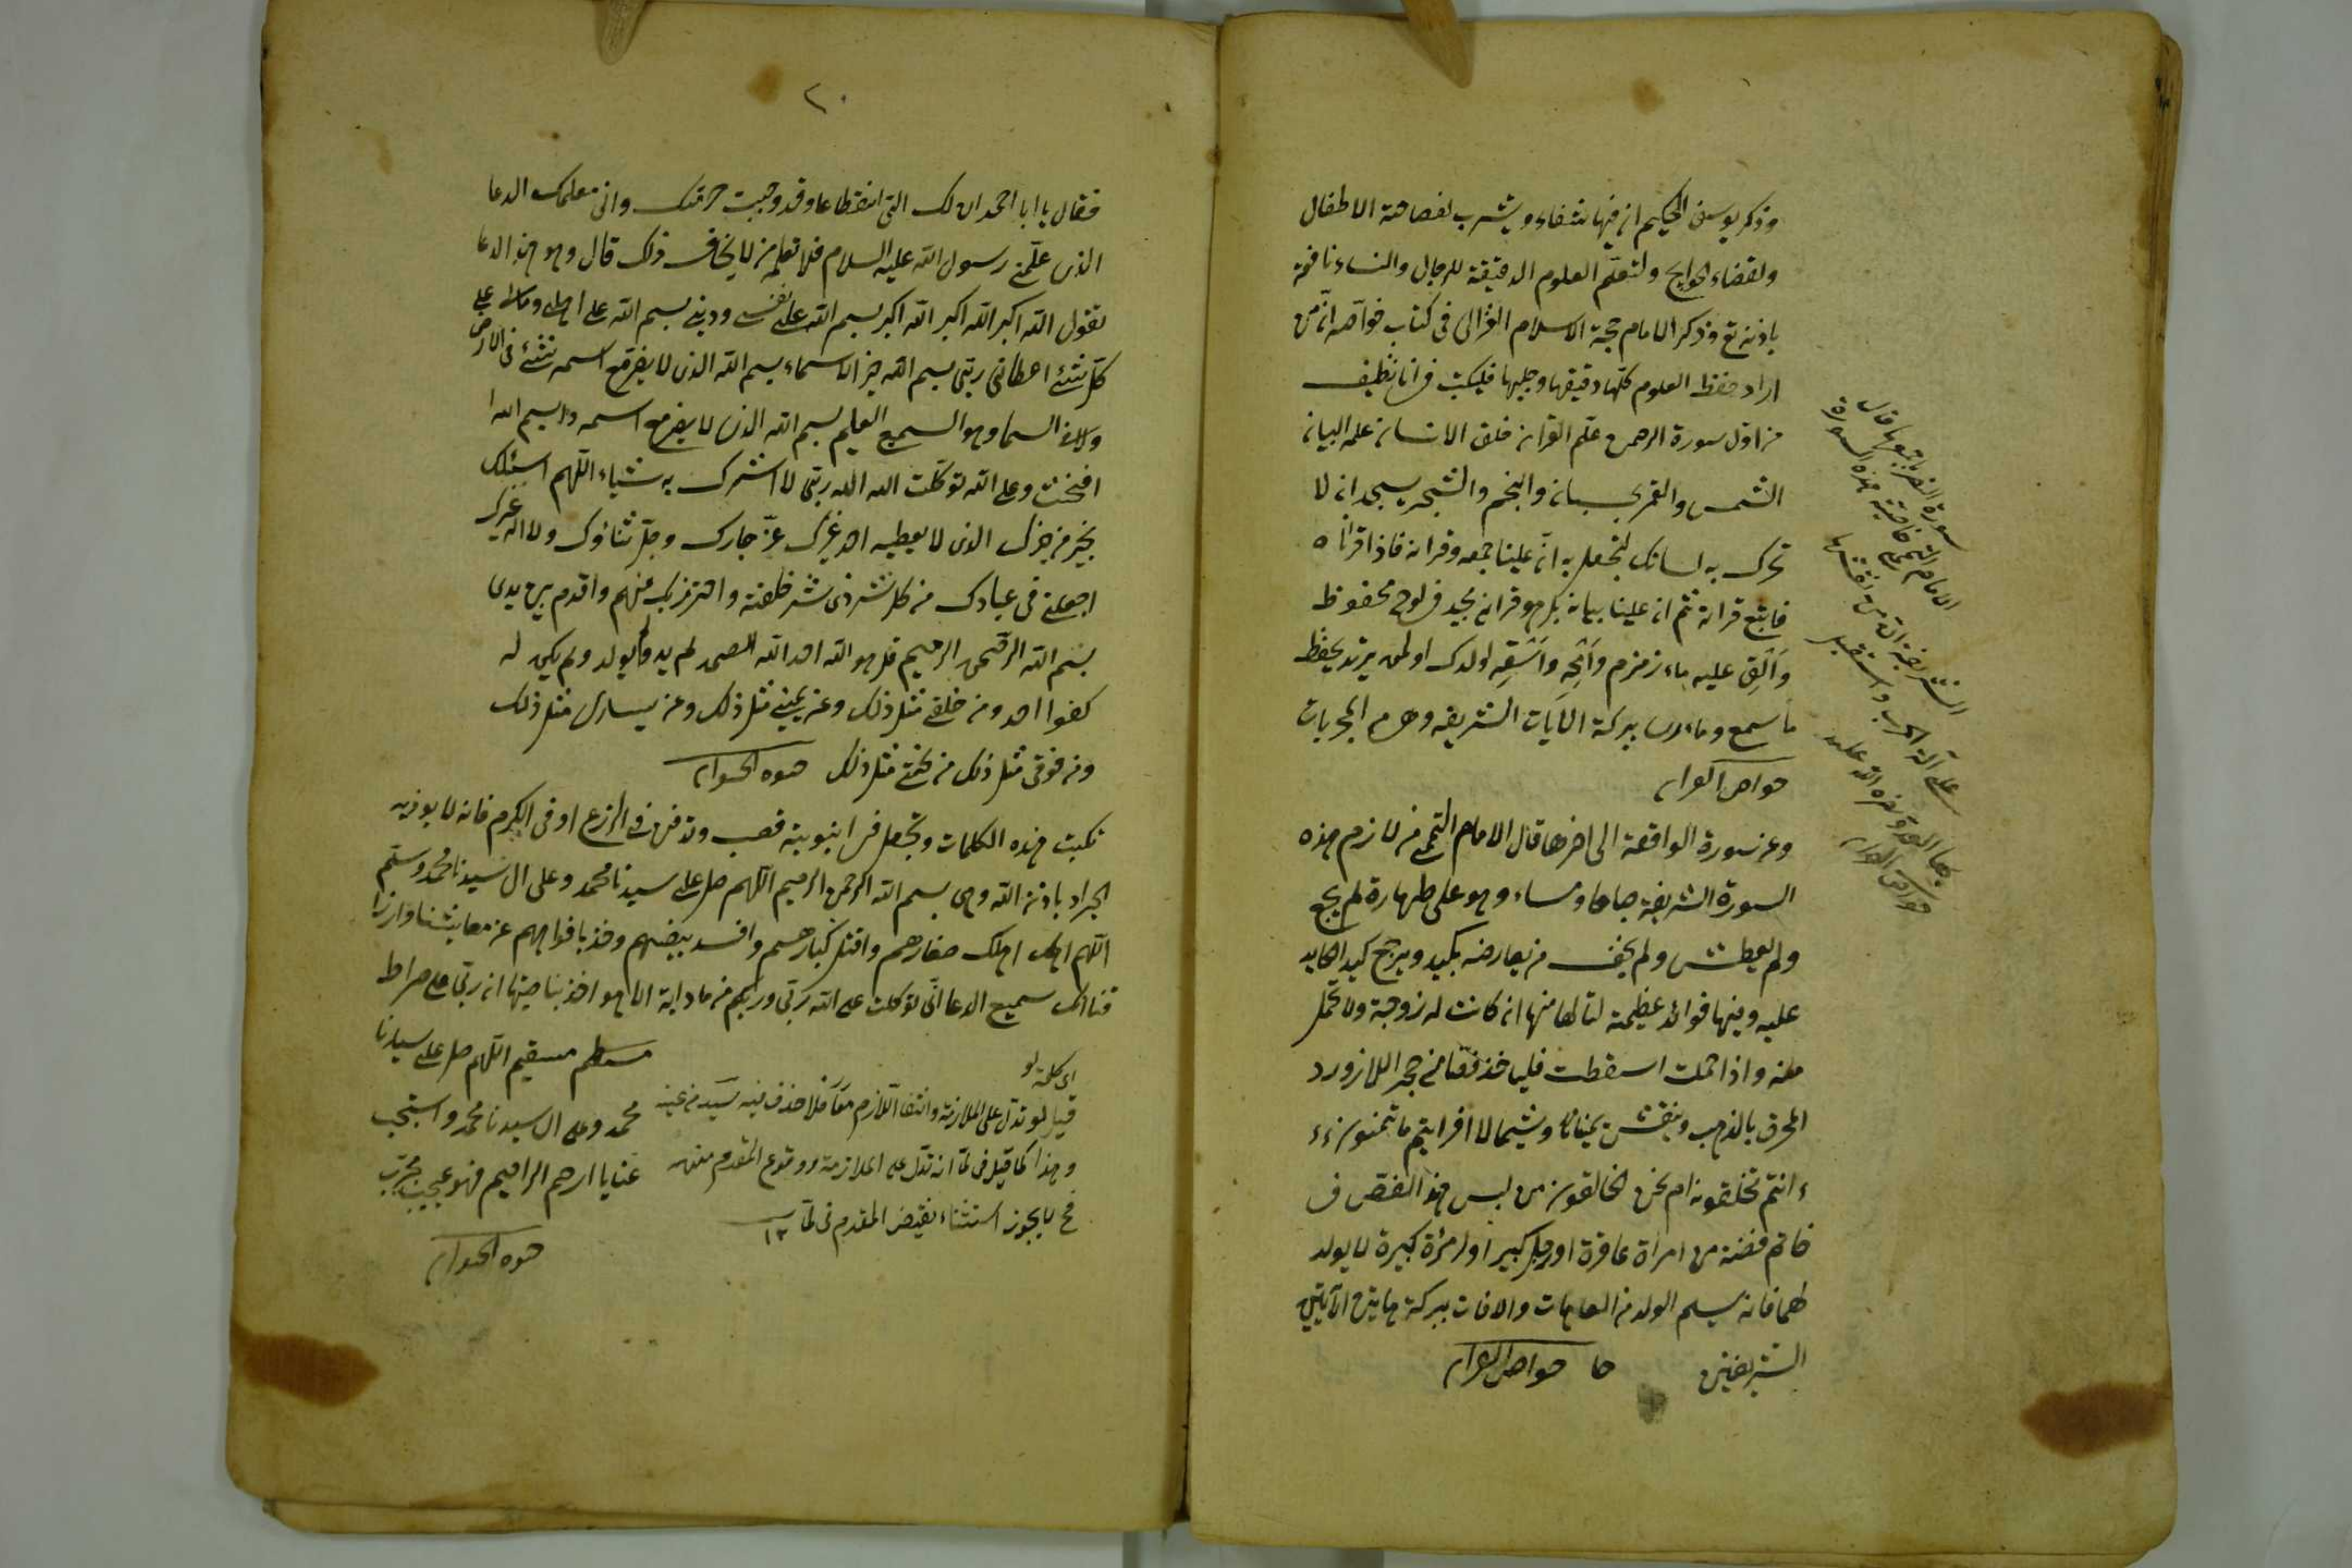 وذكر يوسف الحكيم ان فيها شفاء ويشرب لفصاحة الاطفال
ولقضاء الحوايج ولتعلم العلوم الدقيقة للرجال والنساء نافعة
باذنه تع وذكر الامام حجة الاسلام الغزالى فى كتاب خوآصه انّ من
اراد حفظ العلوم كلّها دقيقها وجليها فليكتب فى اناء نظيف
من اوّل سورة الرحمن علّم القرآن خلق الانسان علمه البيان
الشمس والقمر بحسبان والنجم والشجر يسجدان لا
تحرك به لسانك لتعجل به انّ علينا جمعه وقرانه فاذا قرأناه
فاتبع قرانه ثم ان علينا بيانه بل هو قران مجيد فى لوح محفوظ
وَاَلْقِ عليه ماء زمزم وامحِه واَسْقِه اولدك اولمن يريد يحفظ
ما سمع وما درس ببركة الآيات الشريفه وهى من المجربات
خواص القران
وعن سورة الواقعة الى اخرها قال الامام التميمى من لازم هذه
السورة الشريفة صباحا ومساء وهو على طهارة لم يجع
ولم يعطش ولم يخف من يعارضه بكيد ويرجع كيد الكايد
عليه وفيها فوائد عظيمة لتاليها منها ان كانت له زوجة ولا تحمل
منه واذا حملت اسقطت فليأخذ فصّا من حجر اللازورد
المحرق بالذهب وينقش يمينا وشمالا افرايتم ما تمنون ءَ
ءانتم تخلقونه ام نحن الخالقون من لبس هذا الفصّ فى
خاتم فضة من امراة عاقرة او رجل كبير او امرئة كبيرة لا يولد
لهما فانه يسلم الولد من العاهات والافات ببركة هاتين الآيتين
الشريفتين خواص القران
سورة النصر اجمعها قال
الامام التميمى خاصية هذه السورة
الشريفة انّ من نقشها
على آلة الحرب واستقبل
بها العدو نصره الله عليه
خواص القران
٢٠
فقال يا ابا احمد ان لك الىّ انقطاعا وقد وجبت حرمتك وانى معلمك الدعا
الذى علّمنى رسول الله عليه السلام فلا تعلمه من لا يخاف ذلك قال وهو هذا الدعا
تقول الله اكبر الله اكبر الله اكبر بسم الله على نفسى ودينى بسم الله على اهلى ومالى على
كل شئ اعطانى ربّى بسم الله خير الاسماء بسم الله الذى لا يضر مع اسمه شئ فى الارض
ولا فى السما وهو السميع العليم بسم الله الذى لا يضر مع اسمه داء بسم الله
افتتحت وعلى الله توكلت الله الله ربّى لا اشرك به شياء اللهم اسئلك
بخير من خيرك الذى لا يعطيه احد غيرك عزّ جارك وجلّ ثناؤك ولا اله غيرك
اجعلنى فى عبادك من كل شر ذى شر خلقته واحترز بك منهم واقدم بين يدى
بسم الله الرحمن الرحيم قل هو الله احد الله الصمد لم يلد ولم يولد ولم يكن له
كفوا احد ومن خلفى مثل ذلك وعن يمينى مثل ذلك وعن يسارى مثل ذلك
ومن فوقى مثل ذلك من تحتى مثل ذلك حيوة الحيوان
تكتب هذه الكلمات وتجعل فى انبوبة قصب وتدفن فى الزرع او فى الكرم فانه لا يوذيه
الجراد باذن الله وهى بسم الله الرحمن الرحيم اللهم صل على سيدنا محمد وعلى ال سيدنا محمد وسلم
اللهم اهلك صغارهم واقتل كبارهم وافسد بيضهم وخذ بافواههم عن معايشنا وارزا
قنا انك سميع الدعا انى توكلت على الله ربّى وربكم من ما دابة الا هو اخذ بناصيتها ان ربّى على صراط
مستقيم اللهم صل على سيدنا
محمد وعلى ال سيدنا محمد واستجب
عنا يا ارحم الراحمين فهو عجيب مجرّب
حيوة الحيوان
اى كلمة لو
قيل لو تدل على الملازمة وانتفا اللازم معا فلا حذف فيه
وهذا كما قيل فى لمّا انه تدلّ على الملازمة ووقوع المقدم
فح لا يجوز استثناء نقيض المقدم فى لمّا ١٢